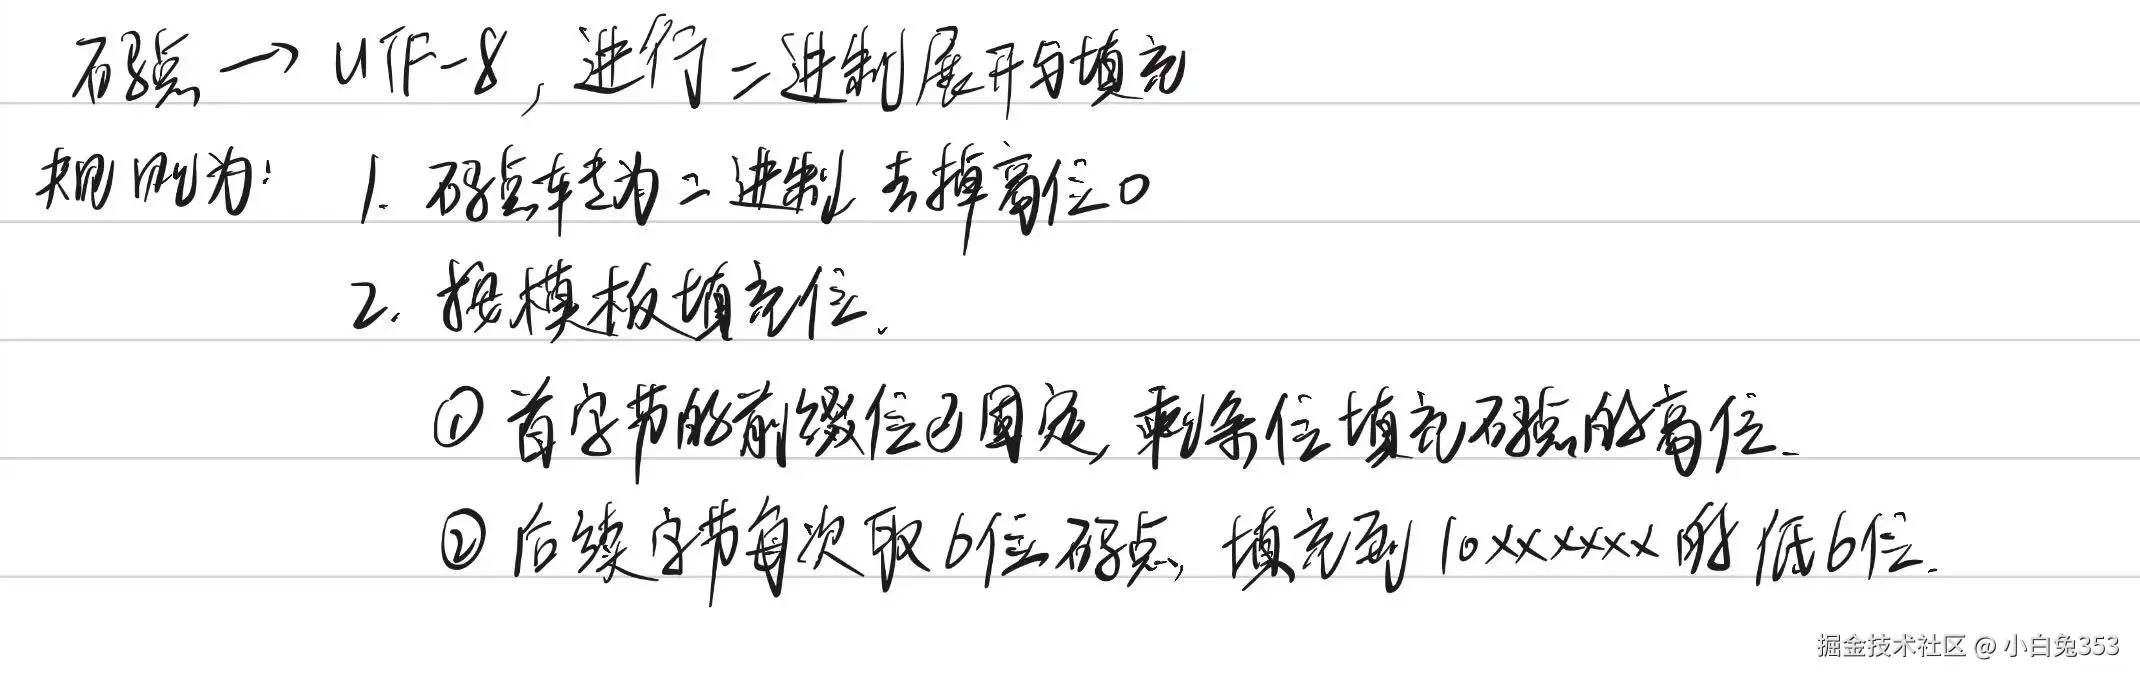 码点→UTF-8,进行二进制展开与填充
规则为: 1. 码点转为二进制去掉高位0
2. 按模板填充位.
① 首字节的前缀位已固定,剩余位填充码点的高位.
② 后续字节每次取6位码点,填充到10xxxxxx的低6位.
掘金技术社区 @ 小白兔353